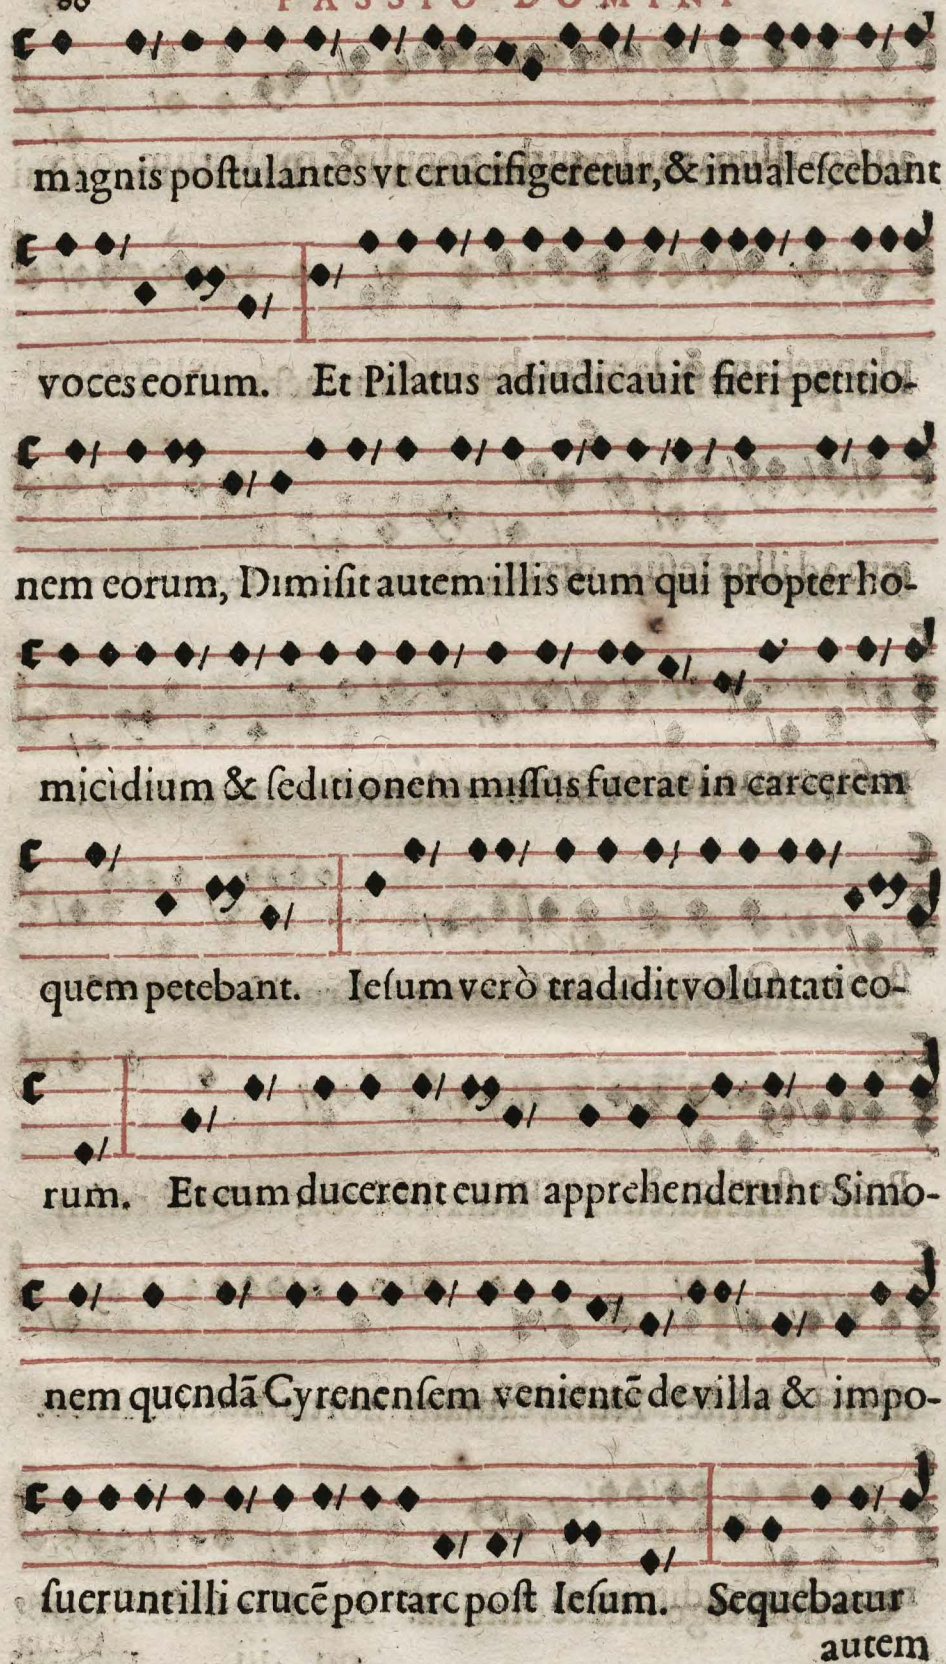 PASSIO DOMINI
magnis poſtulantes vt crucifigeretur, & inualeſcebant
voces eorum. Et Pilatus adiudicauit fieri petitio-
nem eorum, Dimiſit autem illis eum qui propter ho-
micidium & ſeditionem miſſus fuerat in carcerem
quem petebant. Ieſum verò tradidit voluntati eo-
rum. Et cum ducerent eum apprehenderunt Simo-
nem quendã Cyrenenſem venientẽ de villa & impo-
ſuerunt illi crucẽ portare poſt Ieſum. Sequebatur
autem